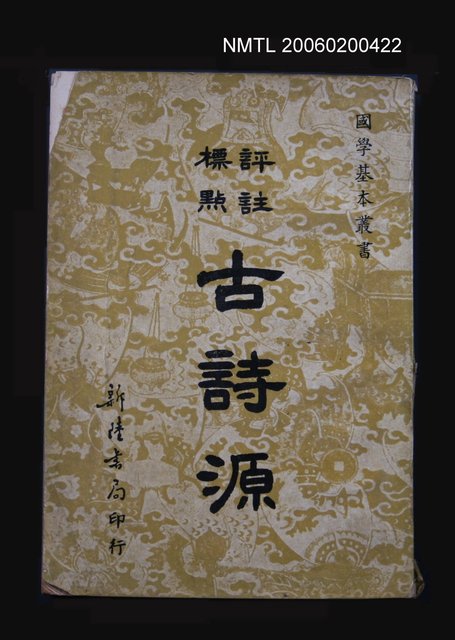 NMTL 20060200422
國學基本叢書
評註
標點
古詩源
新陸書局印行